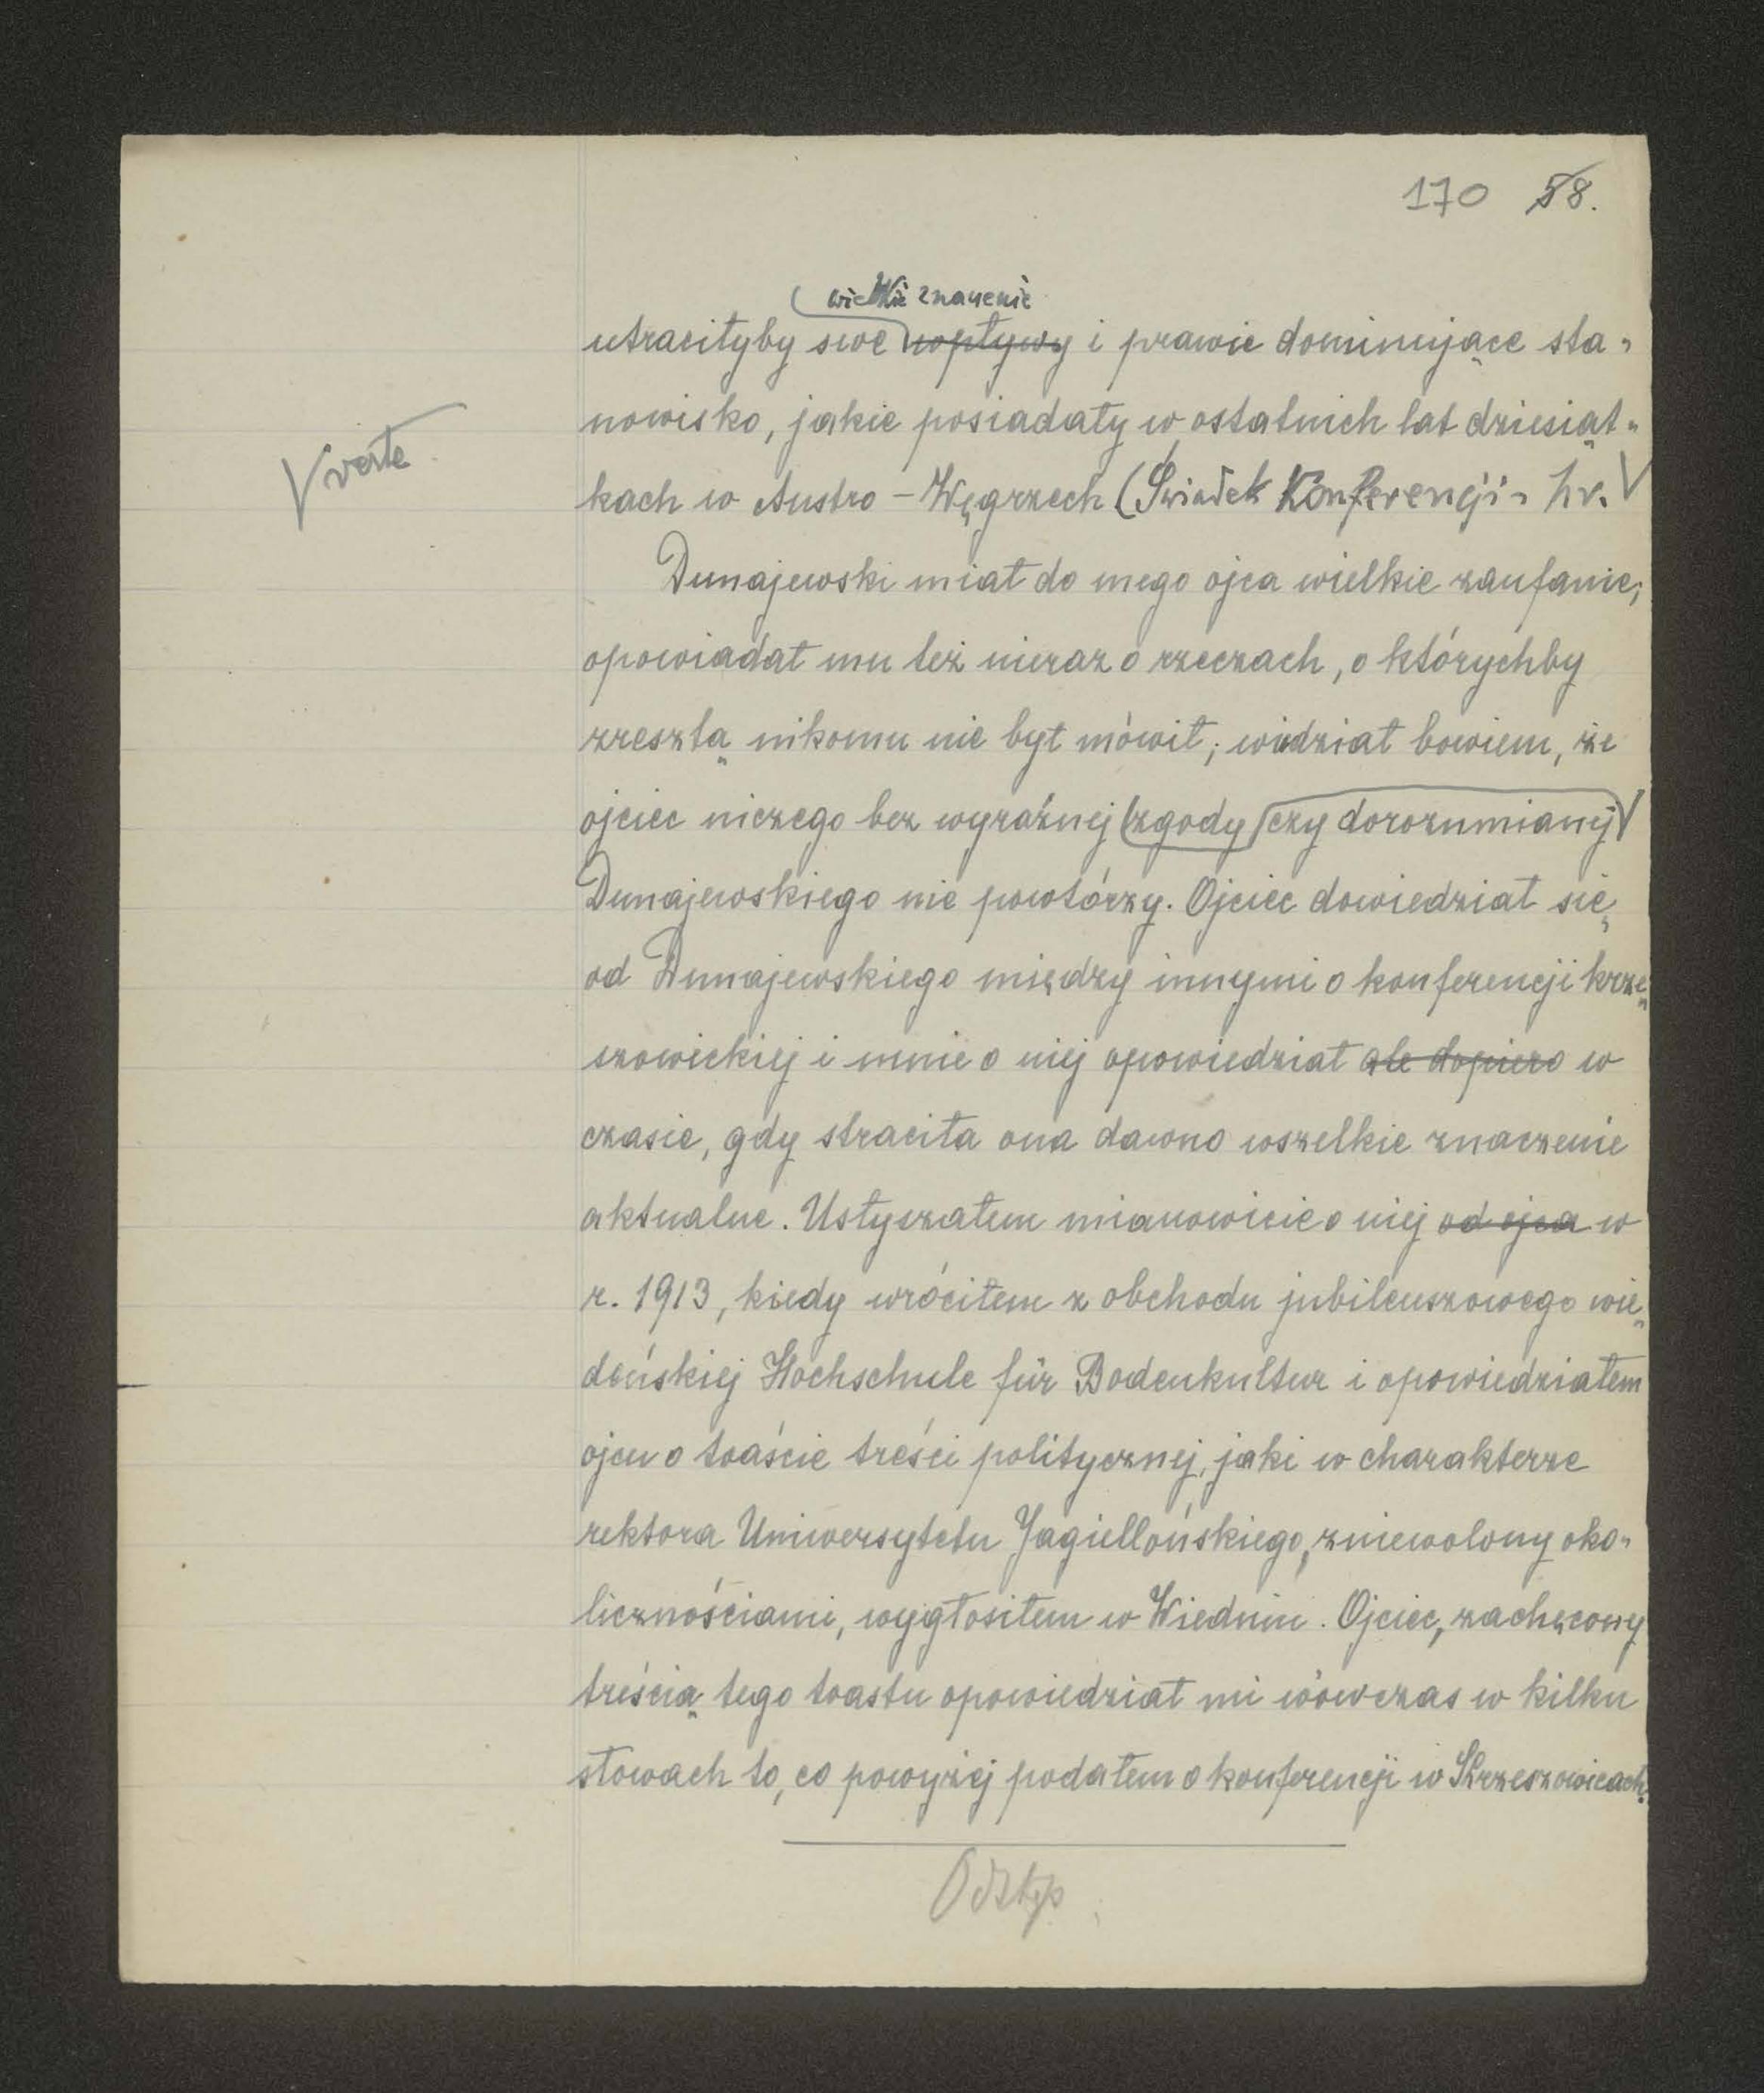 170 58.
wielkie znaczenie
utraciłyby swe wpływy i prawie dominujące sta-
nowisko, jakie posiadały w ostatnich lat dziesiąt-
verte
kach w Austro-Węgrzech (Świadek Konferencji - hr.
Dunajewski miał do mego ojca wielkie zaufanie;
opowiadał mu też nieraz o rzeczach, o którychby
zresztą nikomu nie był mówił; wiedział bowiem, że
ojciec niczego bez wyraźnej zgody czy dorozumianej
Dunajewskiego nie powtórzy. Ojciec dowiedział się
od Dunajewskiego między innymi o konferencji krze-
szowickiej i mnie o niej opowiedział ale dopiero w
czasie, gdy straciła ona dawno wszelkie znaczenie
aktualne. Usłyszałem mianowicie o niej od ojca w
r. 1913, kiedy wróciłem z obchodu jubileuszowego wie-
deńskiej Hochschule für Bodenkultur i opowiedziałem
ojcu o toaście treści politycznej, jaki w charakterze
rektora Uniwersytetu Jagiellońskiego, zniewolony oko-
licznościami, wygłosiłem w Wiedniu. Ojciec, zachęcony
treścią tego toastu opowiedział mi wówczas w kilku
słowach to, co powyżej podałem o konferencji w Krzeszowicach.
Odstęp